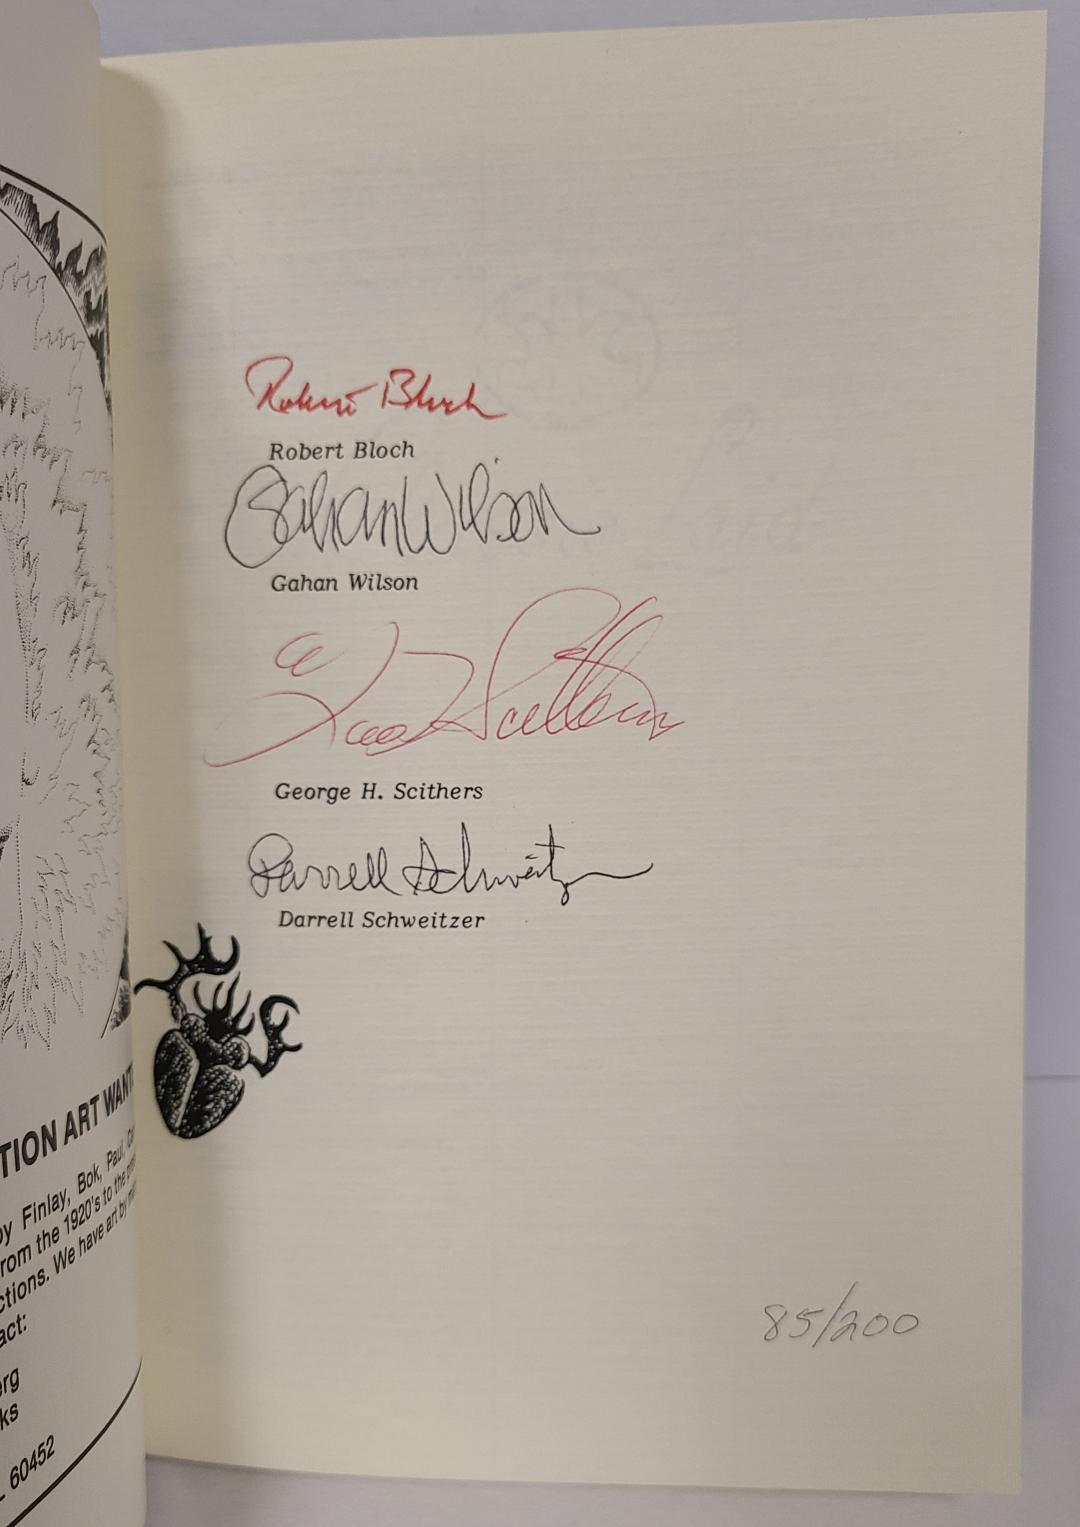 Robert Bloch
Robert Bloch
Gahan Wilson
Gahan Wilson
Geo H Scithers
George H. Scithers
Darrell Schweitzer
Darrell Schweitzer
85/200
TION ART WANT
by Finlay, Bok, Paul,
rom the 1920's to the
ctions. We have art by
act:
erg
ks
60452